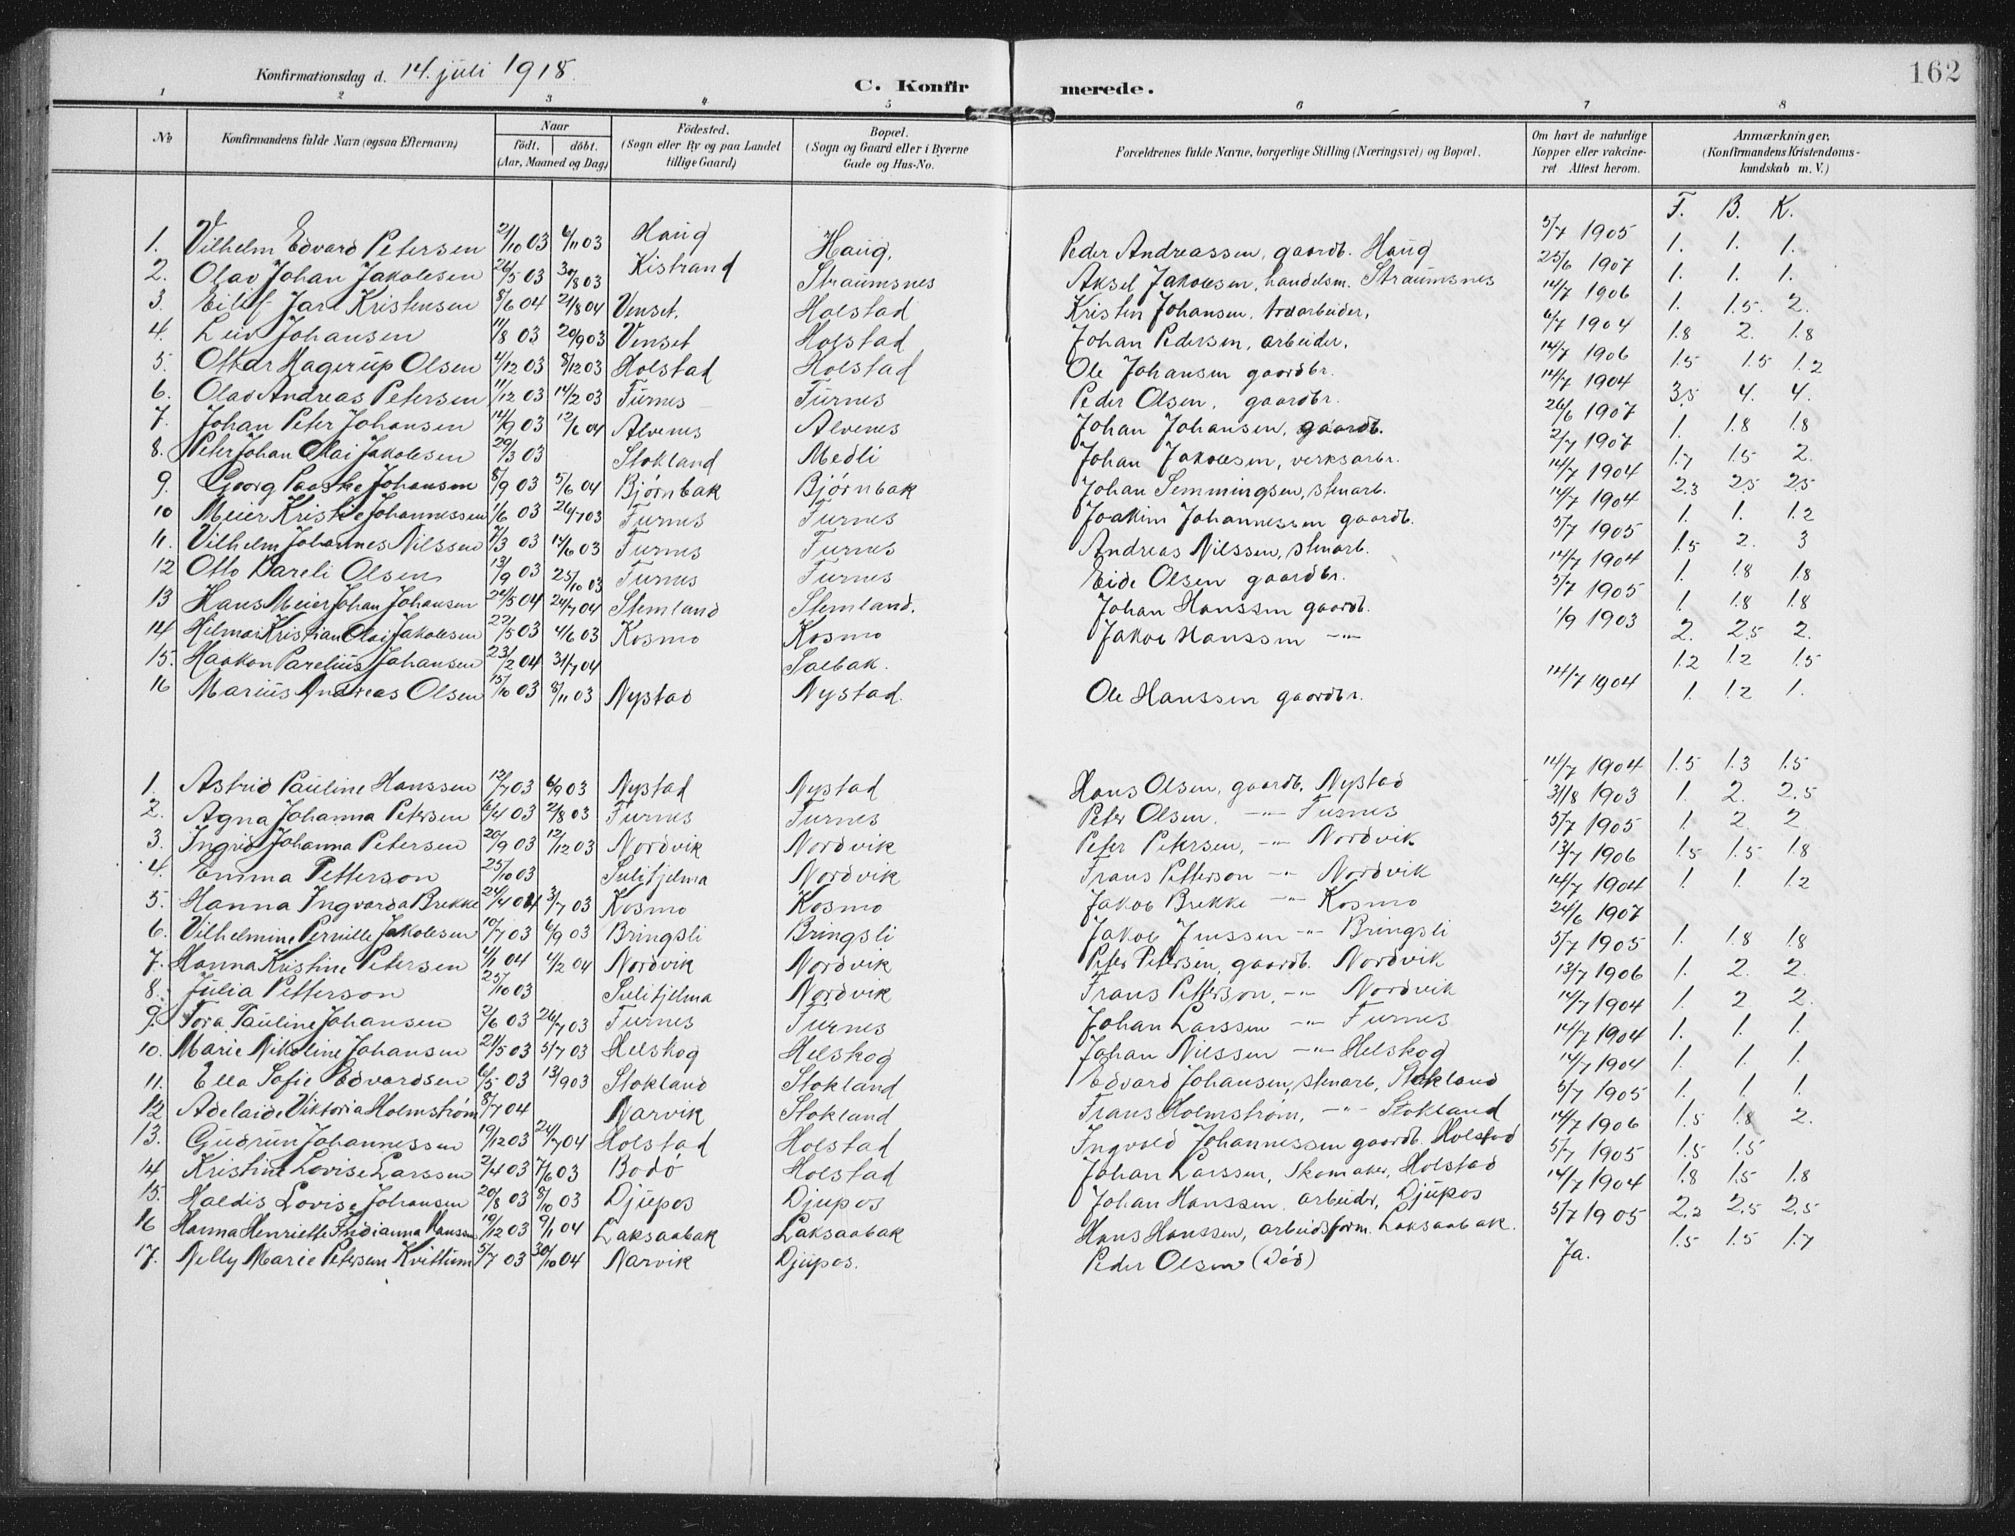 162
Konfirmationsdag d. 14. juli 1918.
C. Konfirmerede.
1 2 3 4 5 6 7 8
No Konfirmandens fulde Navn (ogsaa Efternavn) Naar födt. döbt. (Aar, Maaned og Dag) Födested. (Sogn eller By og paa Landet tillige Gaard) Bopæl. (Sogn og Gaard eller i Byerne Gade og Hus-No. Forældrenes fulde Navne, borgerlige Stilling (Næringsvei) og Bopæl. Om havt de naturlige Kopper eller vakcineret Attest herom. Anmærkninger, (Konfirmandens Kristendomskundskab m. V.)
F. B. K.
1. Vilhelm Edvard Petersen 21/10 03 6/11 03 Haug Haug. Peder Andreassen, gaardb. Haug 5/7 1905 1. 1. 1.
2. Olav Johan Jakobsen 26/5 03 30/8 03 Kistrand Straumsnes Aksel Jakobsen, handelsm. Straumsnes 25/6 1907 1. 1. 1.
3. Eilif Jarl Kristensen 8/6 04 21/8 04 Venset. Holstad Kristen Johansen, træarbeider, 14/7 1906 1. 1.5. 2.
4. Leiv Johansen 11/8 03 20/9 03 Venset Holstad Johan Pedersen, arbeider, 6/7 1904 1.8 2. 1.8
5. Ottar Hagerup Olsen 4/12 03 8/12 03 Holstad Holstad Ole Johansen gaardbr. 14/7 1906 1.5 1.5 1.2
6. Olav Andreas Petersen 11/12 03 14/2 03 Furnes Furnes Peder Olsen, gaardbr. 14/7 1904 3.5 4. 4.
7. Johan Peter Johansen 14/9 03 12/6 04 Alvenes Alvenes Johan Johansen, gaardb. 26/6 1907 1. 1.8 1.8
8. Peter Johan Olai Jakobsen 29/3 03 Stokland Medli Johan Jakobsen, verksarbr. 2/7 1907 1.7 1.5 2.
9. Georg Paaske Johansen 8/9 03 5/6 04 Bjørnbak Bjørnbak Johan Semmingsen, stenarb. 14/7 1904 2.3 2.5 2.5
10 Meier Kristie Johannessen 1/6 03 26/7 03 Furnes Furnes Joakim Johannessen gaardb. 14/7 1904 1. 1. 1.2
11. Vilhelm Johannes Nilssen 7/3 03 14/6 03 Furnes Furnes Andreas Nilssen, stenarb. 5/7 1905 1.5 2. 3
12 Otto Pareli Olsen 13/9 03 25/10 03 Furnes Furnes Eide Olsen gaardbr. 14/7 1904 1. 1.8 1.8
13 Hans Meier Johan Johansen 24/5 04 24/7 04 Stemland Stemland. Johan Hanssen gaardb. 5/7 1905 1. 1.8 1.8
14 Hilmar Kristian Olai Jakobsen 22/5 03 4/6 03 Kosmo Kosmo Jakob Hanssen -"- 1/9 1903 2. 2.5 2.
15. Haakon Parelius Johansen 23/2 04 31/7 04 Saebak. 1.2 1.2 1.5
16 Marius Andreas Olsen 15/10 03 8/11 03 Nystad Nystad. Ole Hanssen gaardbr. 14/7 1904 1. 1.2 1.
1. Astrid Pauline Hanssen 12/7 03 6/9 03 Nystad Nystad Hans Olsen, gaardb. Nystad 14/7 1904 1.5 1.3 1.5
2. Agna Johanna Petersen 6/4 03 2/8 03 Furnes Furnes Peter Olsen, -"- Furnes 31/8 1903 1. 2. 2.5
3. Ingrid Johanna Petersen 20/9 03 12/12 03 Nordvik Nordvik Peter Petersen, -"- Nordvik 5/7 1905 1. 2. 2.
4. Emma Petterson 25/10 03 Sulitjelma Nordvik Frans Petterson -"- Nordvik 13/7 1906 1.5 1.5 1.8
5. Hanna Ingvarda Brekke 24/4 04 3/7 03 Kosmo Kosmo Jakob Brekke -"- Kosmo 14/7 1904 1. 1. 1.2
6. Vilhelmine Pernille Jakobsen 10/7 03 6/9 03 Bringsli Bringsli Jakob Jenssen -"- Bringsli 24/6 1907
7. Hanna Kristine Petersen 4/1 04 4/2 04 Nordvik Nordvik Peter Petersen, gaardb. Nordvik 5/7 1905 1. 1.8 1.8
8. Julia Petterson 25/10 03 Sulitjelma Nordvik Frans Petterson, -"- Nordvik 13/7 1906 1. 2. 2.
9. Tora Pauline Johansen 2/6 03 26/7 03 Furnes Furnes Johan Larssen -"- Furnes 14/7 1904 1. 2 2.
10. Marie Nikoline Johansen 21/5 03 5/7 03 Helskog Helskog Johan Nilssen -"- Helskog 14/7 1904 1. 1. 1.
11. Ella Sofie Edvardsen 6/5 03 13/9 03 Stokland Stokland Edvard Johansen, stenarb, Stokland 14/7 1904 1. 1. 1.
12 Adelaide Viktoria Holmstrøm 8/7 04 Narvik Stokland Frans Holmstrøm, -"- Stokland 5/7 1905 1. 1. 1.
13. Gudrun Johannessen 19/12 03 24/7 04 Holstad Holstad Ingvold Johannessen gaardb. Holstad 14/7 1906 1.5 1.8 2.
14 Kristine Lovise Larssen 2/4 03 7/6 03 Bodö Holstad Johan Larssen, Skomaker, Holstad 5/7 1905 1.5 1.5
15. Haldis Lovise Johansen 20/8 03 8/10 03 Djupos Djupos Johan Hanssen, arbeider, Djupos 14/7 1904 1.8 1.5 1.8
16 Hanna Henriette Indianna Hanssen 19/12 03 9/1 04 Laksaabak Laksaabak Hans Hanssen, arbeidsform. Laksaabak. 5/7 1905 2.2 2.5 2.5
17. Nelly Marie Petersen Kvittum 5/7 03 30/10 04 Narvik Djupos. Peder Olsen (död) Ja. 1.5 1.5 1.7